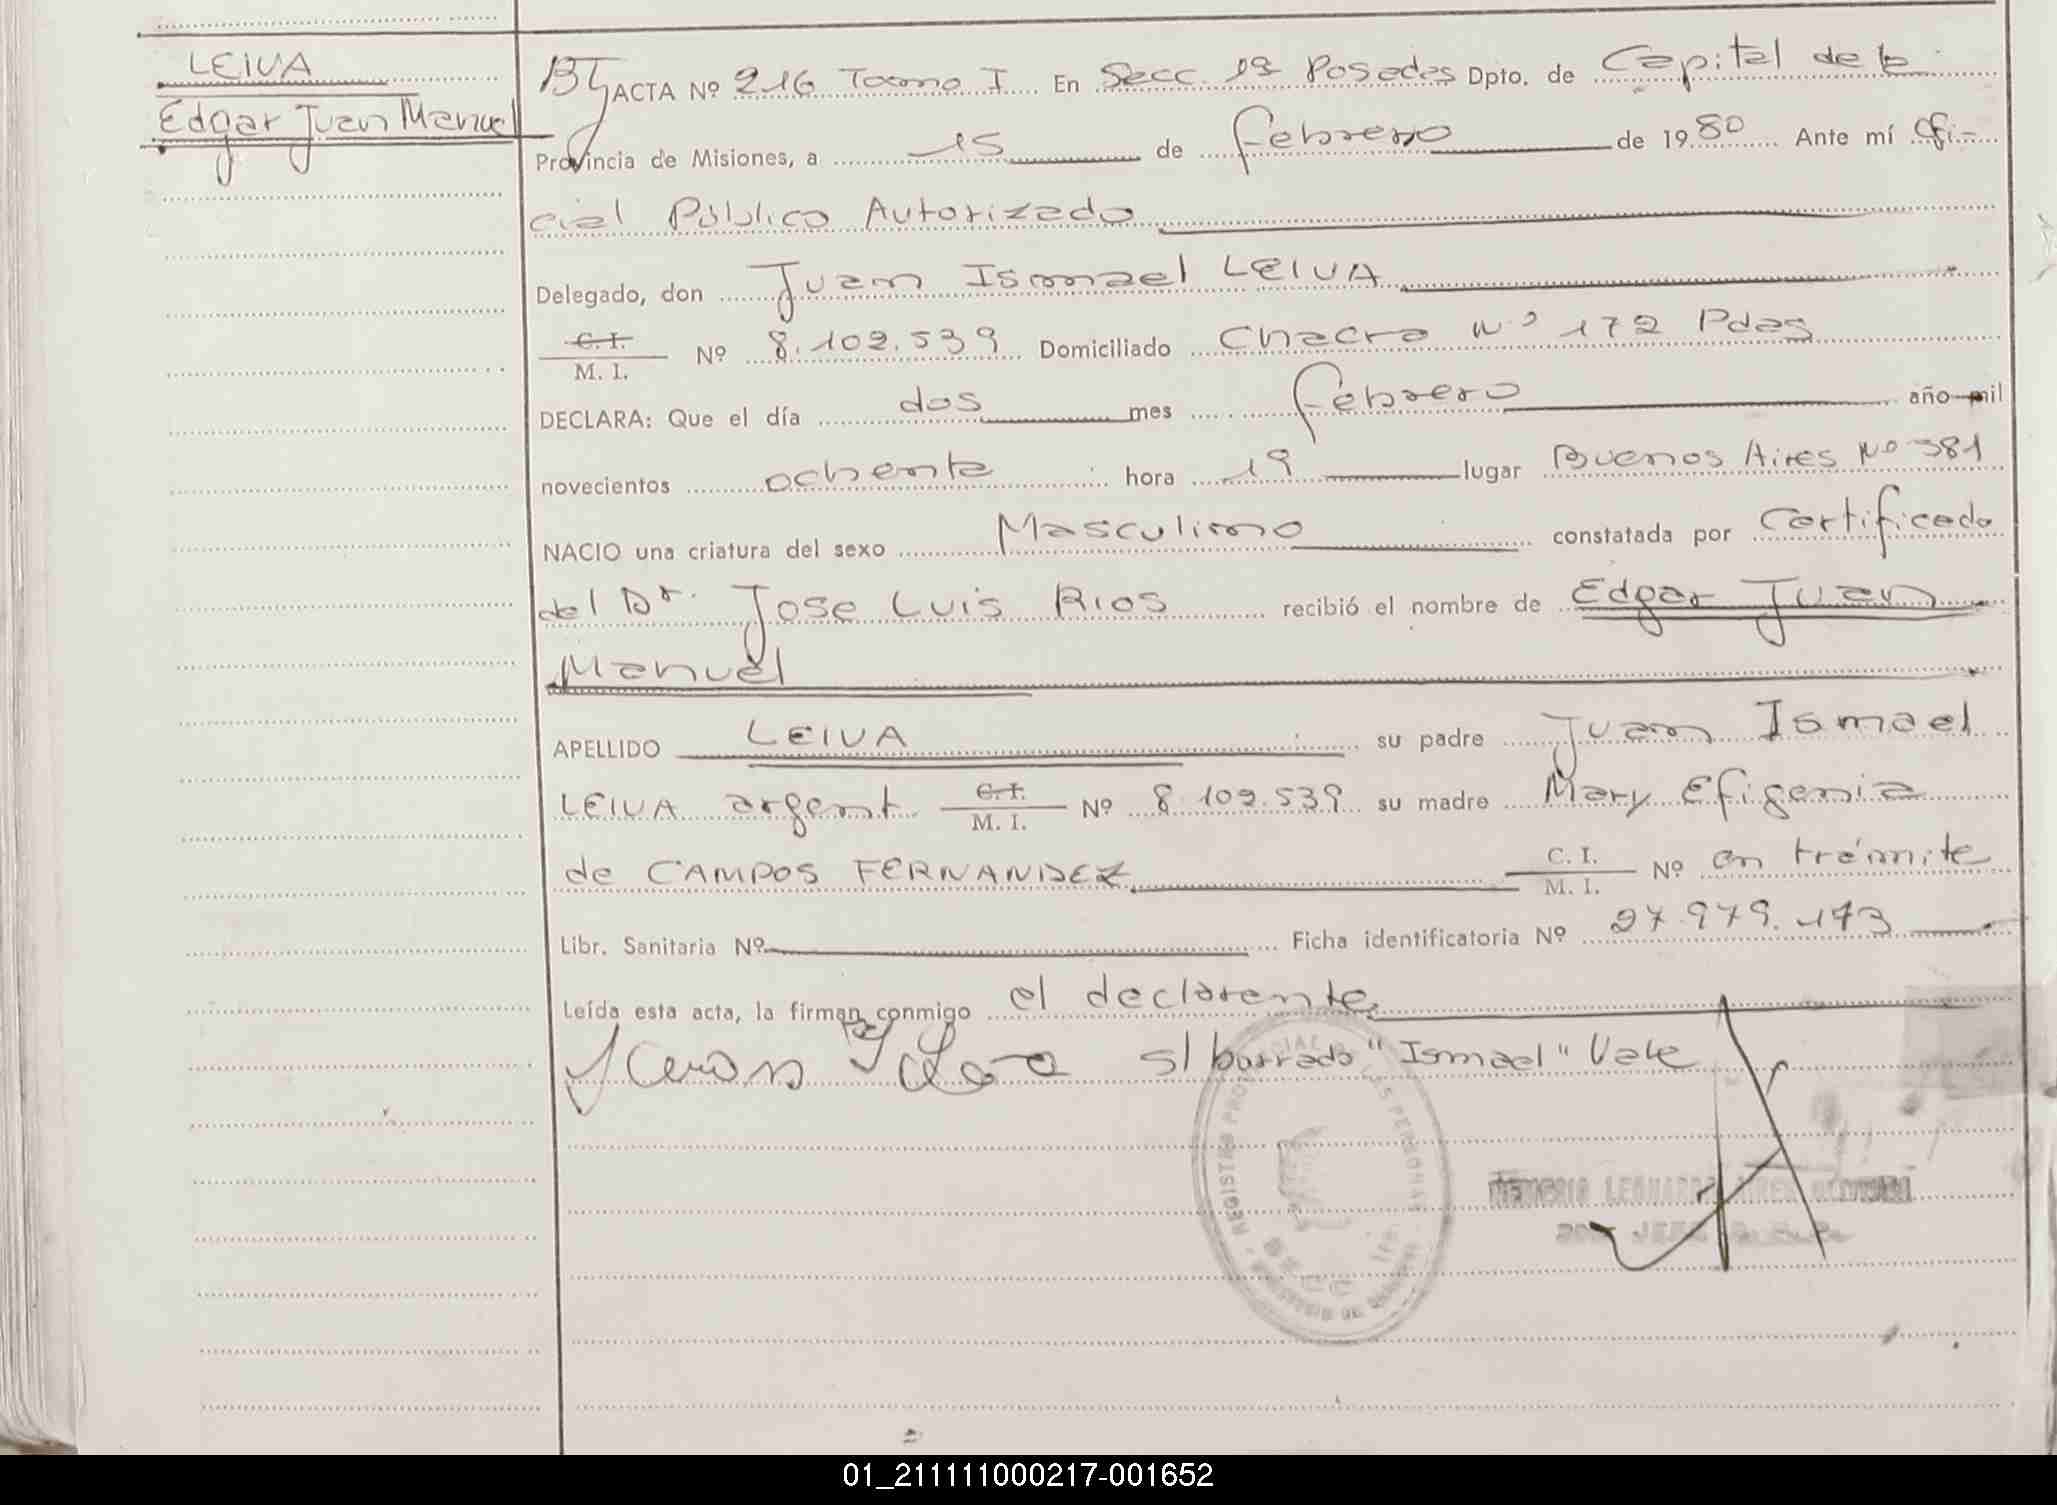 LEIVA
Edgar Juan Manuel
ACTA Nº 216 Tomo I En Secc. 1ª Posadas Dpto. de Capital de la
Provincia de Misiones, a 15 de febrero de 1980 Ante mí Ofi-
cial Público Autorizado
Delegado, don Juan Ismael LEIVA
C.I. / M. I. Nº 8.102.539 Domiciliado Chacra Nº 172 Pdas
DECLARA: Que el día dos mes febrero año mil
novecientos ochenta hora 19 lugar Buenos Aires Nº 381
NACIO una criatura del sexo Masculino constatada por Certificado
del Dr. Jose Luis Rios recibió el nombre de Edgar Juan
Manuel
APELLIDO LEIVA su padre Juan Ismael
LEIVA argent. C.I. / M. I. Nº 8.102.539 su madre Mary Efigenia
de CAMPOS FERNANDEZ C. I. / M. I. Nº en trámite
Libr. Sanitaria Nº Ficha identificatoria Nº 27.979.173
Leída esta acta, la firman conmigo el declarante.
s/ borrado "Ismael" Vale
01_211111000217-001652